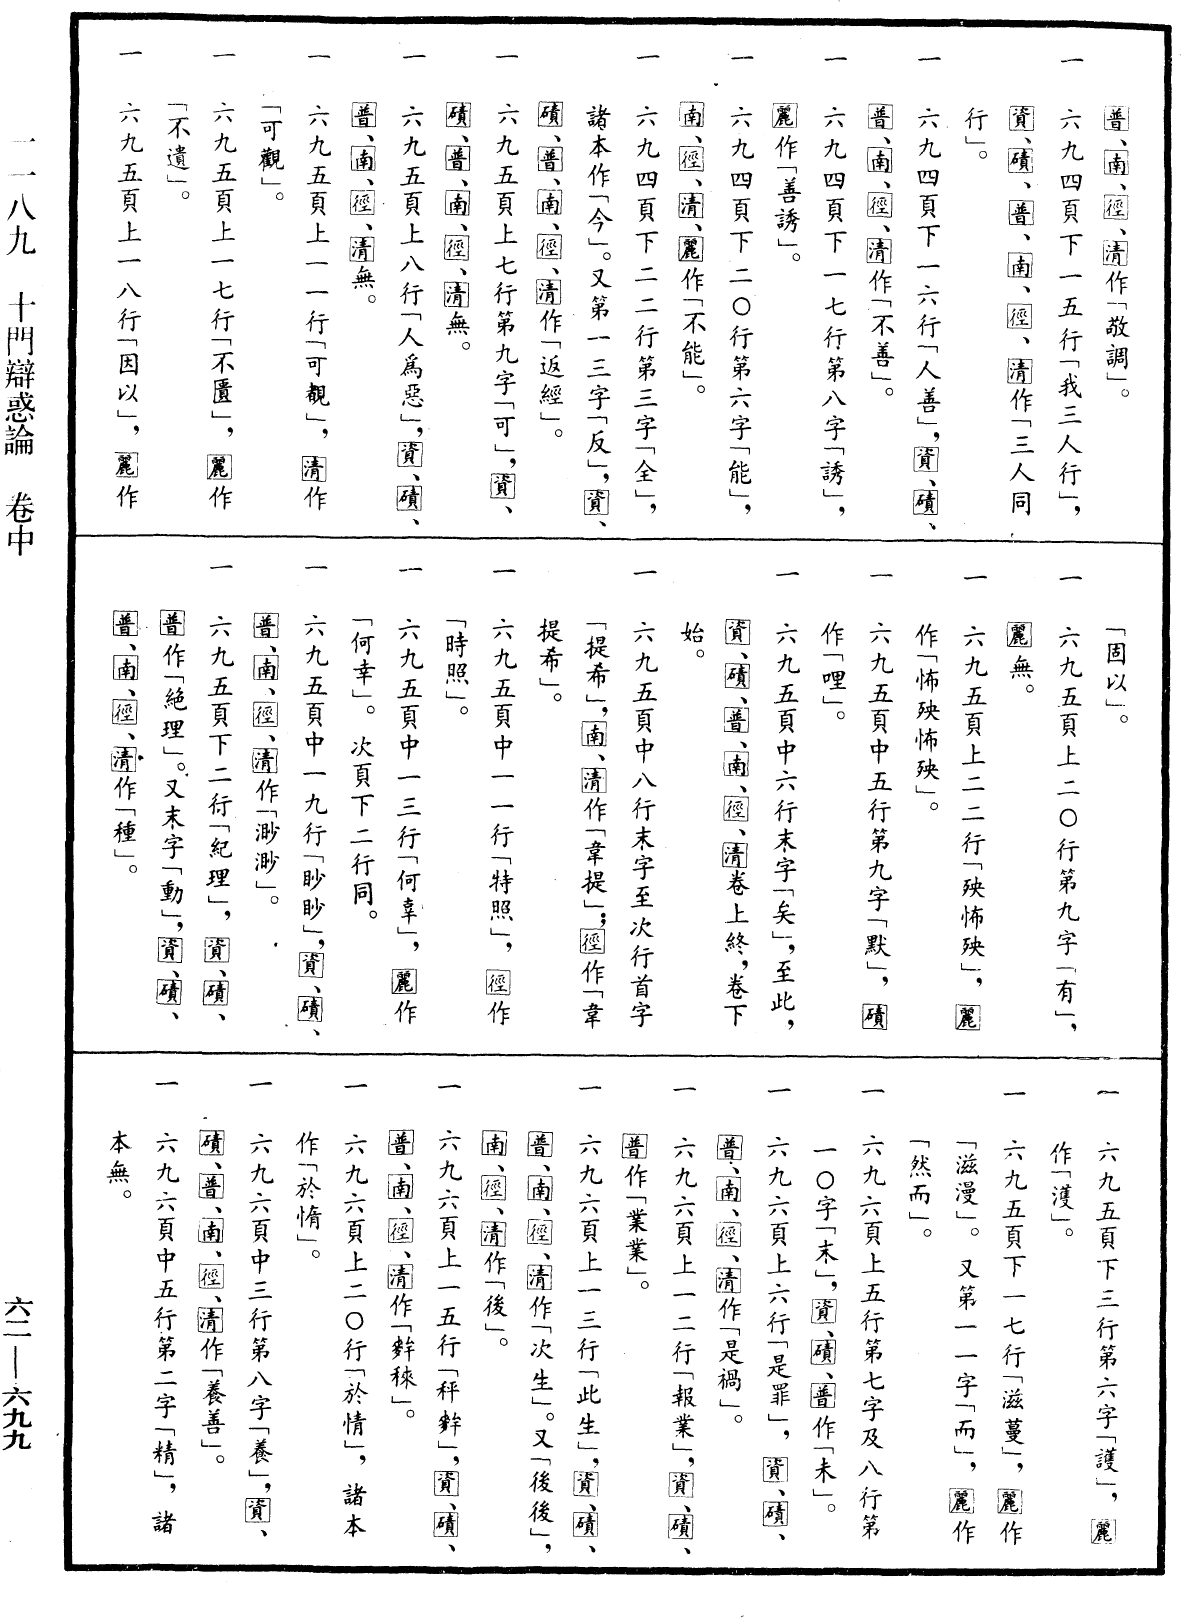 普、南、徑、清作「敬調」。
一　六九四頁下一五行「我三人行」，
資、磧、普、南、徑、清作「三人同
行」。
一　六九四頁下一六行「人善」，資、磧、
普、南、徑、清作「不善」。
一　六九四頁下一七行第八字「誘」，
麗作「善誘」。
一　六九四頁下二〇行第六字「能」，
南、徑、清、麗作「不能」。
一　六九四頁下二二行第三字「全」，
諸本作「今」。又第一三字「反」，資、
磧、普、南、徑、清作「返經」。
一　六九五頁上七行第九字「可」，資、
磧、普、南、徑、清無。
一　六九五頁上八行「人爲惡」，資、磧、
普、南、徑、清無。
一　六九五頁上一一行「可覩」，清作
「可觀」。
一　六九五頁上一七行「不匱」，麗作
「不遺」。
一　六九五頁上一八行「因以」，麗作
「固以」。
一　六九五頁上二〇行第九字「有」，
麗無。
一　六九五頁上二二行「殃怖殃」，麗
作「怖殃怖殃」。
一　六九五頁中五行第九字「默」，磧
作「哩」。
一　六九五頁中六行末字「矣」，至此，
資、磧、普、南、徑、清卷上終，卷下
始。
一　六九五頁中八行末字至次行首字
「提希」，南、清作「韋提」；徑作「韋
提希」。
一　六九五頁中一一行「特照」，徑作
「時照」。
一　六九五頁中一三行「何辜」，麗作
「何幸」。次頁下二行同。
一　六九五頁中一九行「眇眇」，資、磧、
普、南、徑、清作「渺渺」。
一　六九五頁下二行「紀理」，資、磧、
普作「絶理」。又末字「動」，資、磧、
普、南、徑、清作「種」。
一　六九五頁下三行第六字「護」，麗
作「濩」。
一　六九五頁下一七行「滋蔓」，麗作
「滋漫」。又第一一字「而」，麗作
「然而」。
一　六九六頁上五行第七字及八行第
一〇字「末」，資、磧、普作「未」。
一　六九六頁上六行「是罪」，資、磧、
普、南、徑、清作「是禍」。
一　六九六頁上一二行「報業」，資、磧、
普作「業業」。
一　六九六頁上一三行「此生」，資、磧、
普、南、徑、清作「次生」。又「後後」，
南、徑、清作「後」。
一　六九六頁上一五行「秤」，資、磧、
普、南、徑、清作「」。
一　六九六頁上二〇行「於情」，諸本
作「於惰」。
一　六九六頁中三行第八字「養」，資、
磧、普、南、徑、清作「養善」。
一　六九六頁中五行第二字「精」，諸
本無。
一一八九　十門辯惑論　卷中
六二—六九九